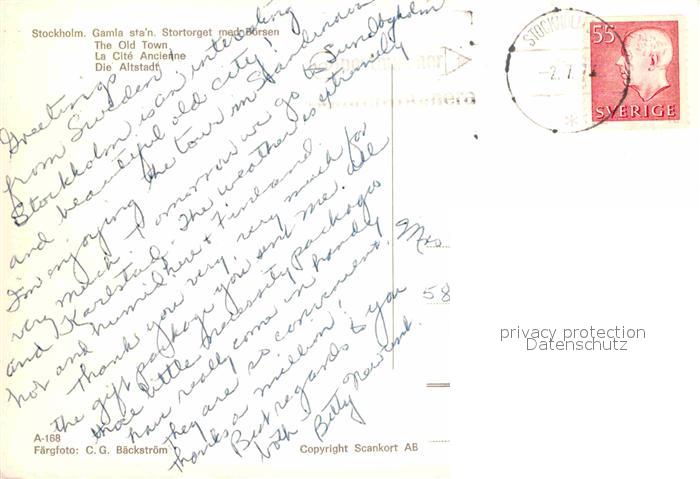 Stockholm. Gamla sta'n. Stortorget med Börsen
The Old Town
La Cité Ancienne
Die Altstadt
STOCKHOLM
–2.7.
55
SVERIGE
Greetings
from Sweden!
Stockholm is an interesting
and beautiful old city!
I'm enjoying the tour in Scandinavia
very much. Tomorrow we go to Sundbyholm
and Karlstad. The weather is extremely
hot and humid here + Finland.
Thank you very, very much for
the gift package you sent me. All
those little necessity packages
have really come in handy
they are so convenient.
thanks a million!
Best regards to you
both Betty
Mrs
58
privacy protection
Datenschutz
A-168
Färgfoto: C. G. Bäckström
Copyright Scankort AB